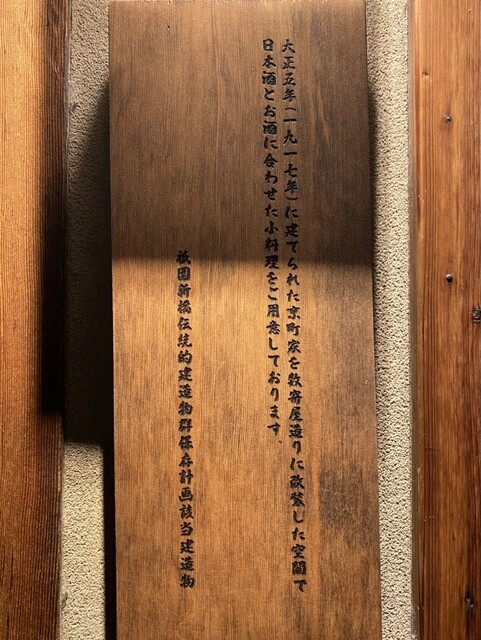 大正五年(一九一七年)に建てられた京町家を数寄屋造りに改装した空間で
日本酒とお酒に合わせた小料理をご用意しております。
祇園新橋伝統的建造物群保存計画該当建造物